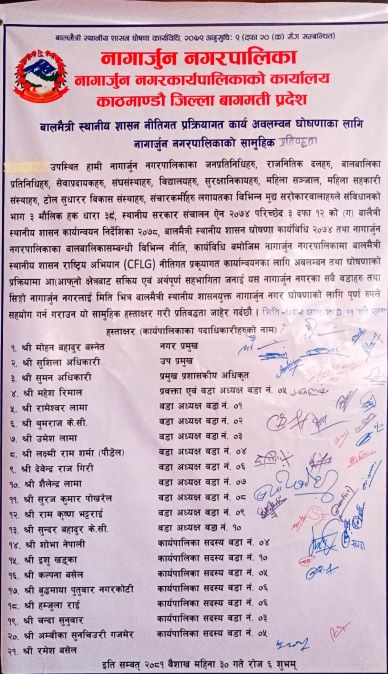 बालमैत्री स्थानीय शासन घोषणा कार्यविधि, २०७९ अनुसूचि: ९ (दफा २० (क) सँग सम्बन्धित)
नागार्जुन नगरपालिका
नागार्जुन नगरकार्यपालिकाको कार्यालय
काठमाण्डौ जिल्ला बागमती प्रदेश
बालमैत्री स्थानीय शासन नीतिगत प्रक्रियागत कार्य अवलम्बन घोषणाका लागि
नागार्जुन नगरपालिकाको सामुहिक प्रतिवद्धता
उपस्थित हामी नागार्जुन नगरपालिकाका जनप्रतिनिधिहरु, राजनितिक दलहरु, बालबालिका
प्रतिनिधिहरु, सेवाप्रदायकहरु, संघसंस्थाहरु, विद्यालयहरु, सुरक्षानिकायहरु, महिला सञ्जाल, महिला सहकारी
संस्थाहरु, टोल सुधारर विकास संस्थाहरु, संचारकर्मीहरु लगायतका विभिन्न मुख्य सरोकारवालाहरुले संविधानको
भाग ३ मौलिक हक धारा ३९, स्थानीय सरकार संचालन ऐन २०७४ परिच्छेद ३ दफा १२ को (ग) बालमैत्री
स्थानीय शासन कार्यान्वयन निर्देशिका २०७८, बालमैत्री स्थानीय शासन घोषणा कार्यविधि २०७४ तथा नागार्जुन
नगरपालिकाका बालबालिकासम्बन्धी विभिन्न नीति, कार्यविधि बमोजिम नागार्जुन नगरपालिकामा बालमैत्री
स्थानीय शासन राष्ट्रिय अभियान (CFLG) नीतिगत प्रकृयागत कार्यान्वयनका लागि अवलम्बन तथा घोषणाको
प्रक्रियामा आ-आफ्नो क्षेत्रबाट सक्रिय एवं अर्थपूर्ण सहभागिता जनाई यस नागार्जुन नगरका सबै वडाहरु तथा
सिङ्गो नागार्जुन नगरलाई मिति भित्र बालमैत्री स्थानीय शासनयुक्त नागार्जुन नगर घोषणाको लागि पूर्ण रुपले
सहयोग गर्न गराउन यो सामुहिक हस्ताक्षर गरी प्रतिवद्धता जाहेर गर्दछौं ।
हस्ताक्षर (कार्यपालिकाका पदाधिकारीहरुको नाम)
१. श्री मोहन बहादुर बस्नेत नगर प्रमुख
२. श्री सुशिला अधिकारी उप प्रमुख
३. श्री सुमन अधिकारी प्रमुख प्रशासकीय अधिकृत
४. श्री महेश रिमाल प्रवक्ता एवं वडा अध्यक्ष वडा नं. ०५
५. श्री रामेश्वर लामा वडा अध्यक्ष वडा नं. ०१
६. श्री थुमराज के.सी. वडा अध्यक्ष वडा नं. ०२
७. श्री उमेश लामा वडा अध्यक्ष वडा नं. ०३
८. श्री लक्ष्मी राम शर्मा (पौडेल) वडा अध्यक्ष वडा नं. ०४
९. श्री देवेन्द्र राज गिरी वडा अध्यक्ष वडा नं. ०६
१०. श्री शैलेन्द्र लामा वडा अध्यक्ष वडा नं. ०७
११. श्री सुरज कुमार पोखरेल वडा अध्यक्ष वडा नं. ०८
१२. श्री राम कृष्ण भट्टराई वडा अध्यक्ष वडा नं. ०९
१३. श्री सुन्दर बहादुर के.सी. वडा अध्यक्ष वडा नं. १०
१४. श्री शोभा नेपाली कार्यपालिका सदस्य वडा नं. ०४
१५. श्री इशु खड्का कार्यपालिका सदस्य वडा नं. १०
१६. श्री कल्पना बसेल कार्यपालिका सदस्य वडा नं. ०५
१७. श्री बुद्धमाया पुतुवार नगरकोटी कार्यपालिका सदस्य वडा नं. ०६
१८. श्री हम्जुला राई कार्यपालिका सदस्य वडा नं. ०६
१९. श्री चन्दा सुनुवार कार्यपालिका सदस्य वडा नं. ०३
२०. श्री अम्बीका सुनचिउरी गजमेर कार्यपालिका सदस्य वडा नं. ०५
२१. श्री रमेश बसेल
इति सम्वत् २०८१ बैशाख महिना ३० गते रोज ६ शुभम्